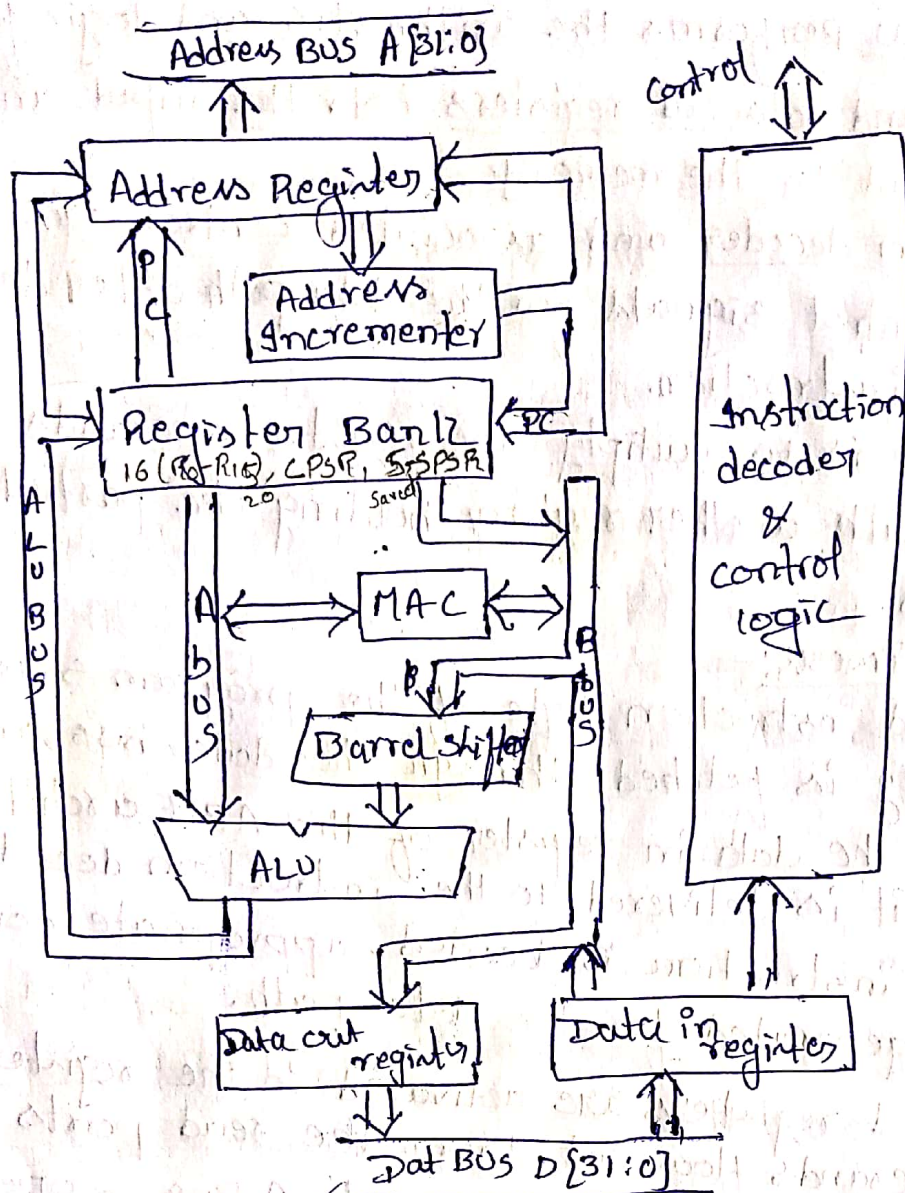 Address BUS A[31:0]
control
Address Register
PC
Address
Incrementer
Register Bank
PC
16 (R0-R15), CPSR, 5-SPSR
20
Saved
ALU BUS
A bUS
MAC
B BUS
B
Barrel Shifter
ALU
Instruction
decoder
&
control
logic
Data out
register
Data in
register
Dat BUS D[31:0]